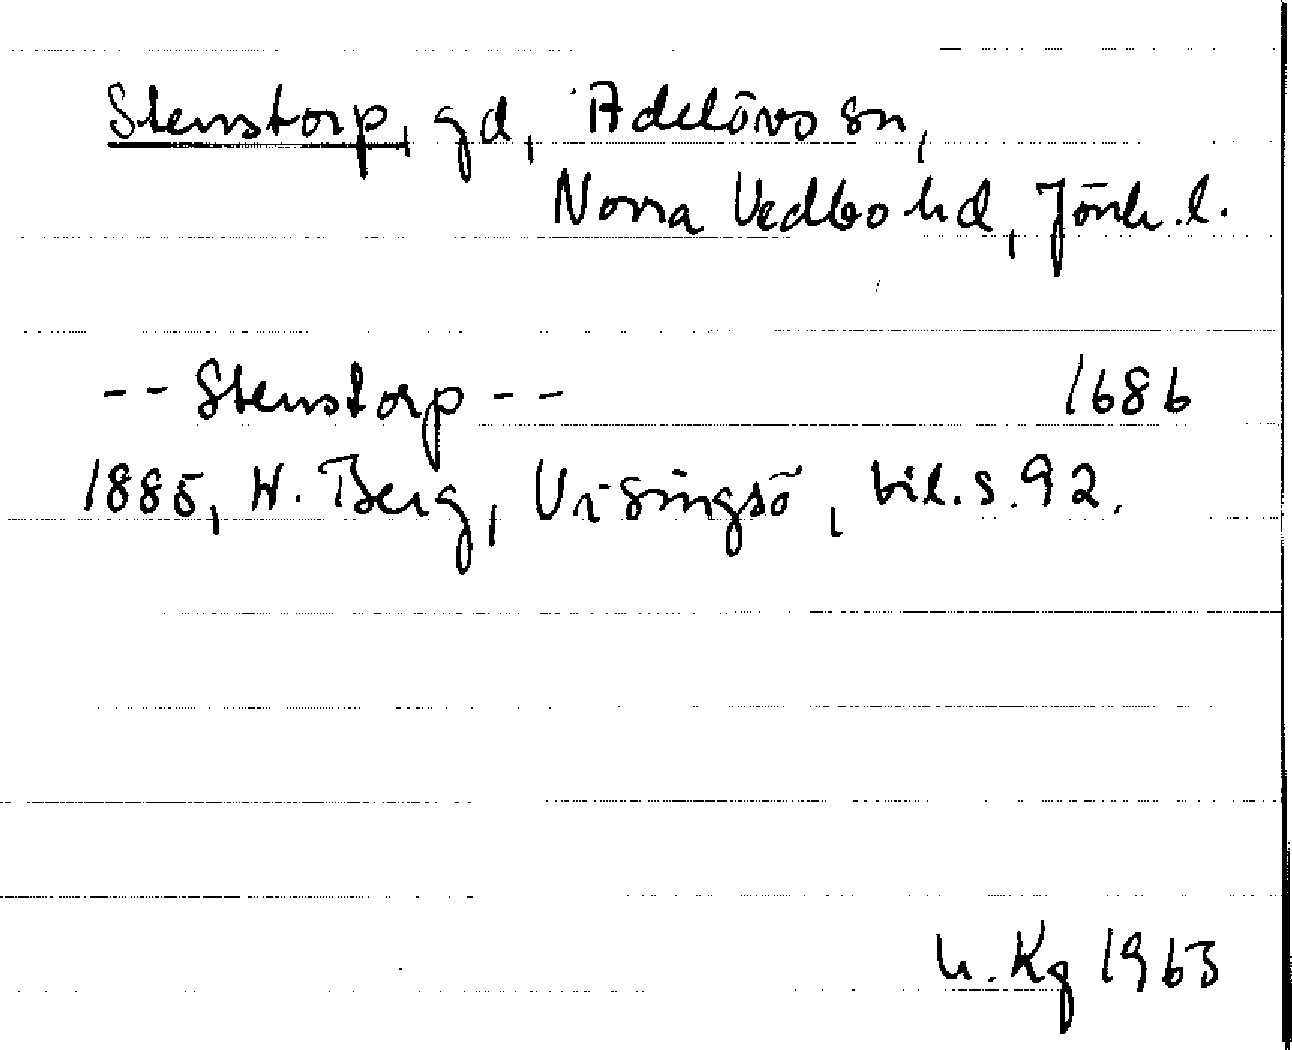 Stenstorp, gd, Adelövs sn,
Norra Vedbo hd, Jönk. l.
-- Stenstorp -- 1686
1885, W. Berg, Visingsö, bil. s. 92.
Kg 1963